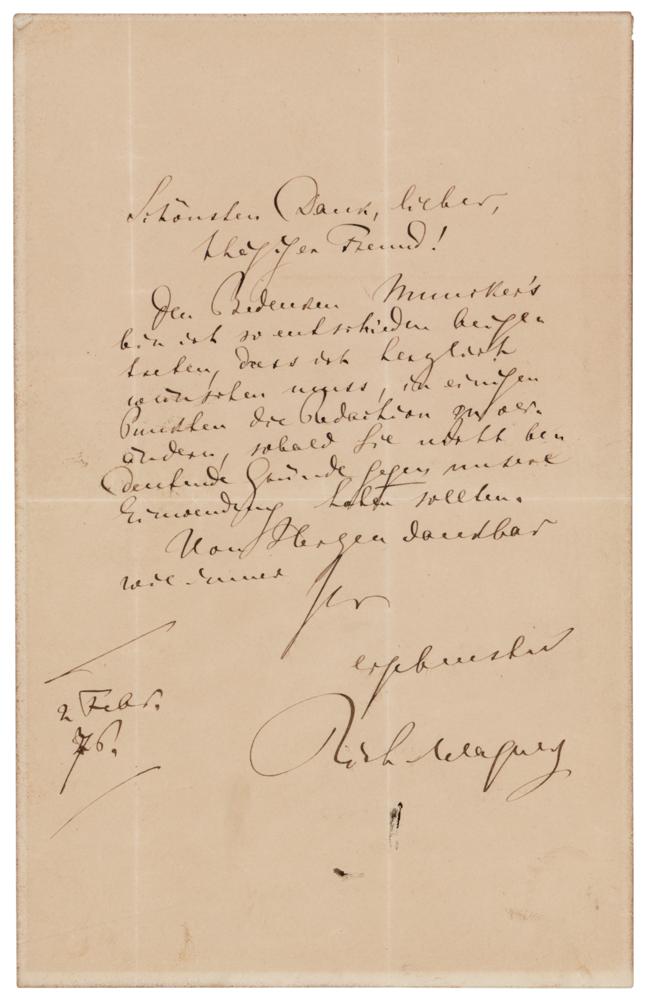 Schönsten Dank, lieber,
thätiger Freund!
Den Bedenken Muncker's
bin ich so entschieden beige-
treten, dass ich herzlich
wünschen muss, in einigen
Punkten die Redaction zu ver-
ändern, sobald Sie nicht be-
deutende Gründe gegen unsere
Einwendung haben sollten.
Von Herzen dankbar
wie immer
Ihr
ergebenster
Rich. Wagner
2 Febr.
76.